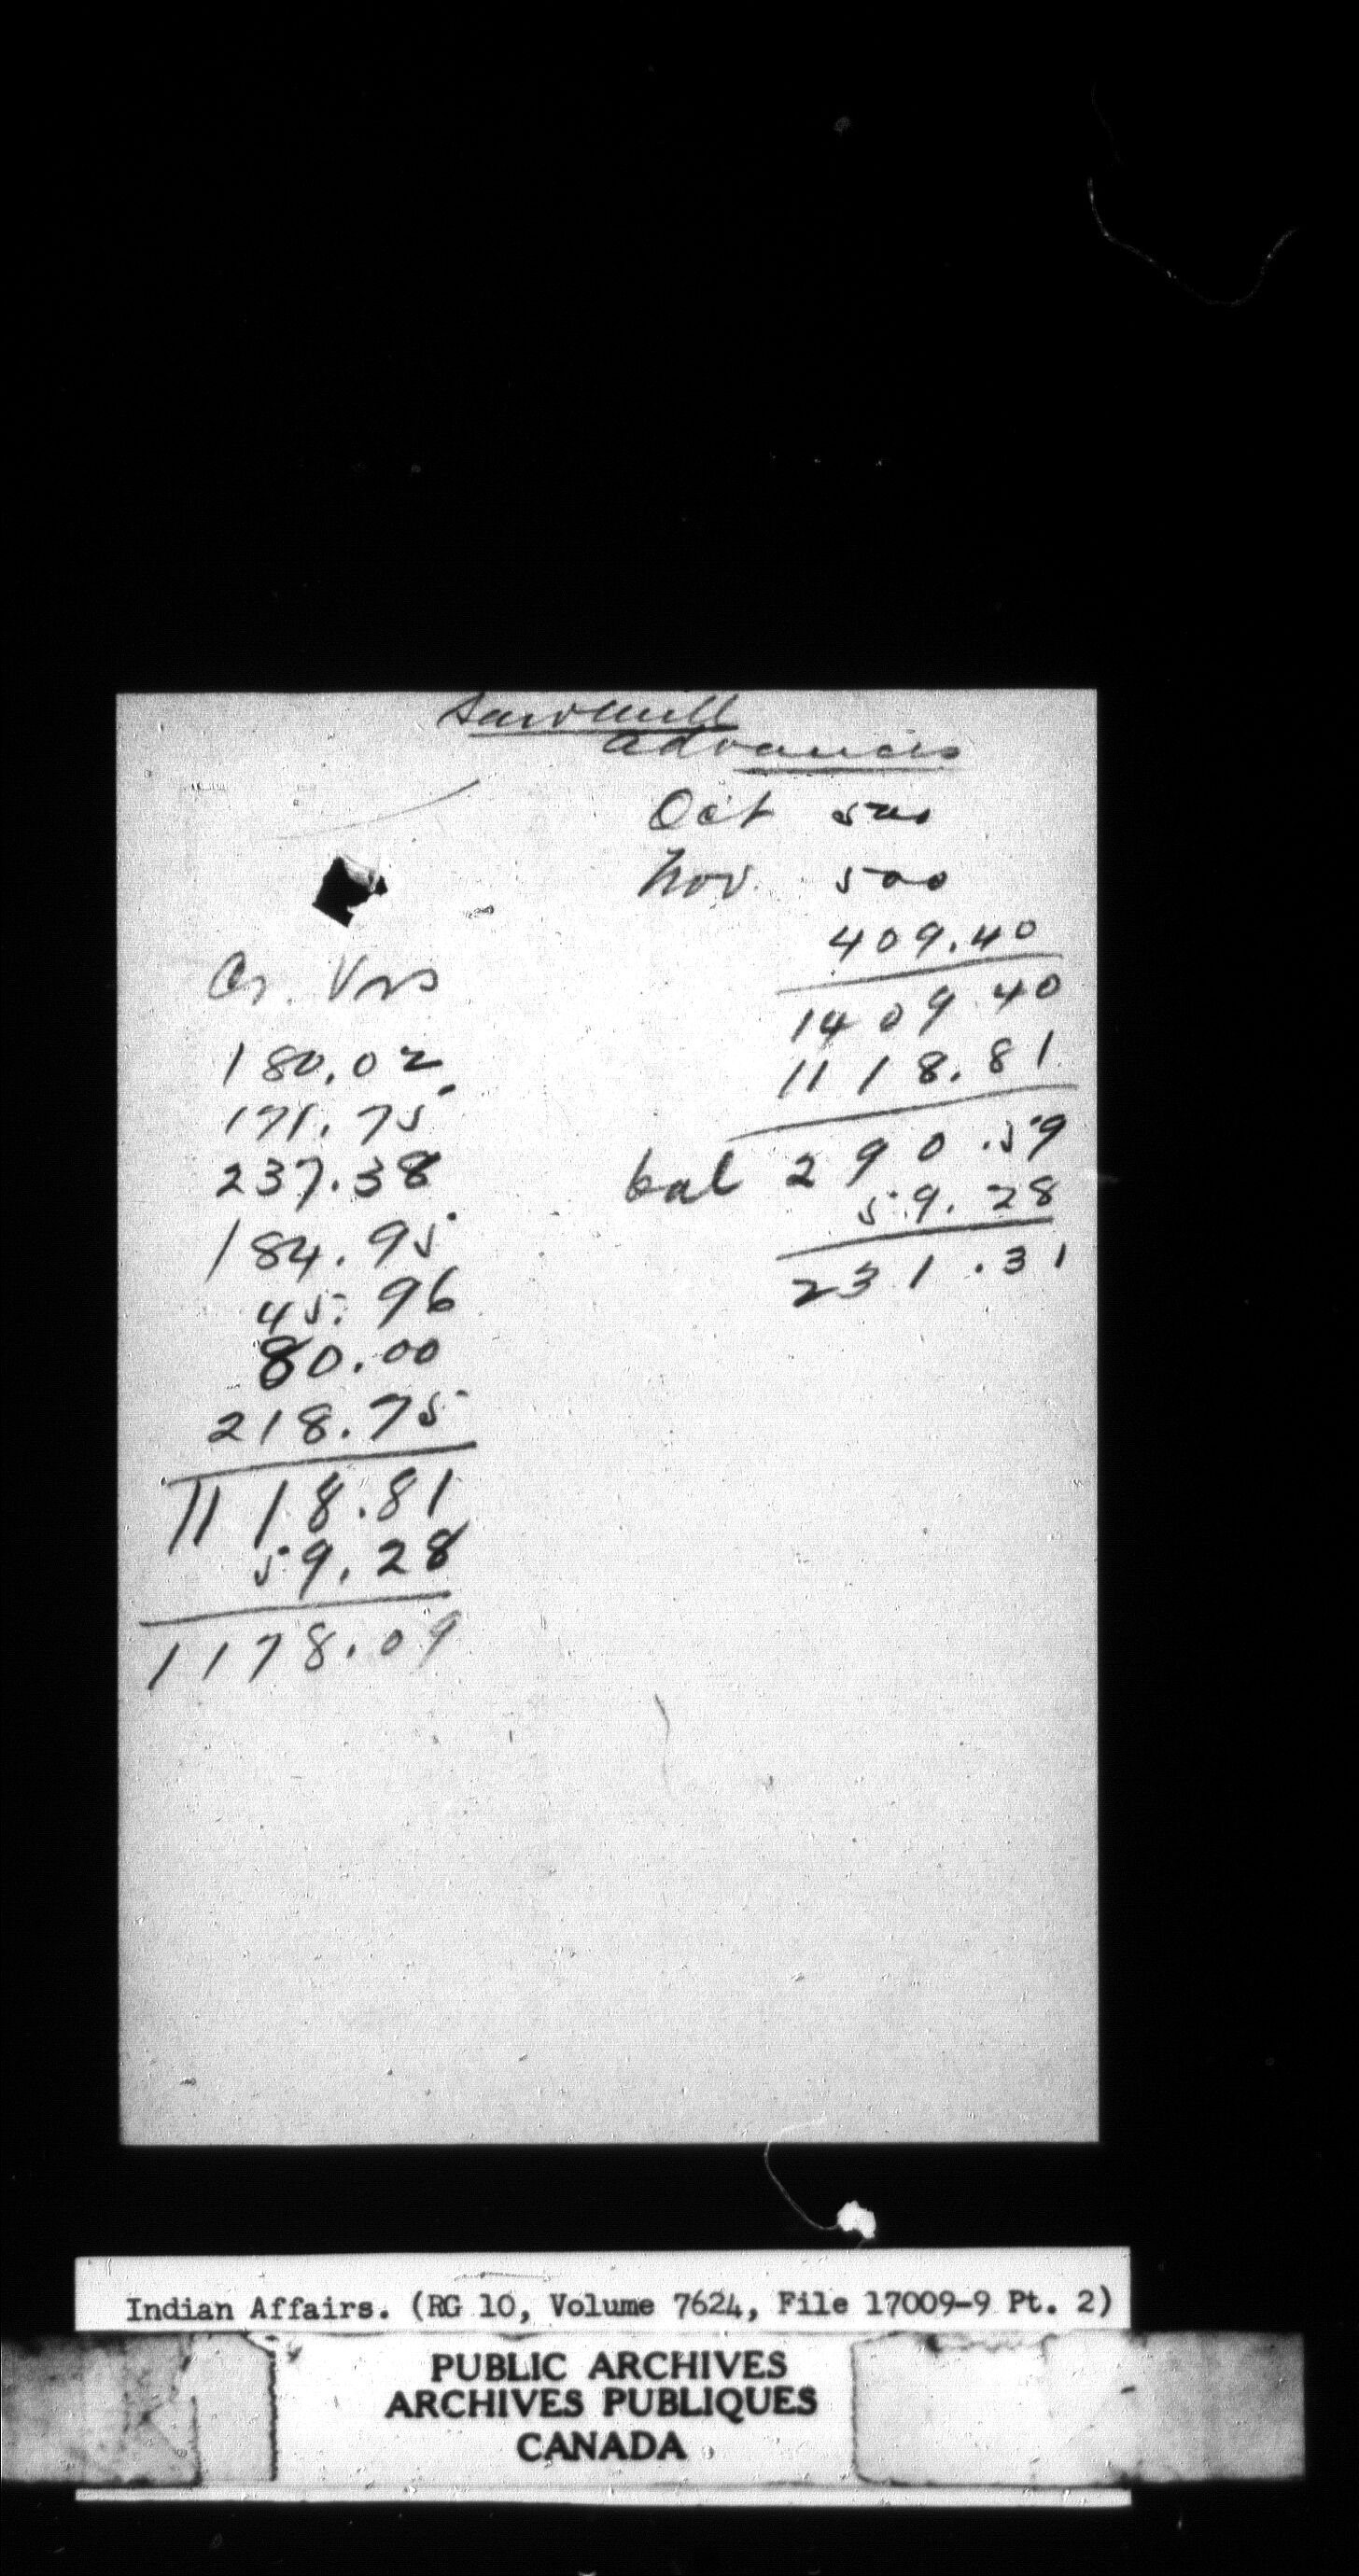 Sawmill
advances
Oct 500
Nov. 500
409.40
1409.40
1118.81
bal 290.59
59.28
231.31
Cr. Vrs
180.02
171.75
237.38
184.95
45.96
80.00
218.75
1118.81
59.28
1178.09
Indian Affairs. (RG 10, Volume 7624, File 17009-9 Pt. 2)
PUBLIC ARCHIVES
ARCHIVES PUBLIQUES
CANADA